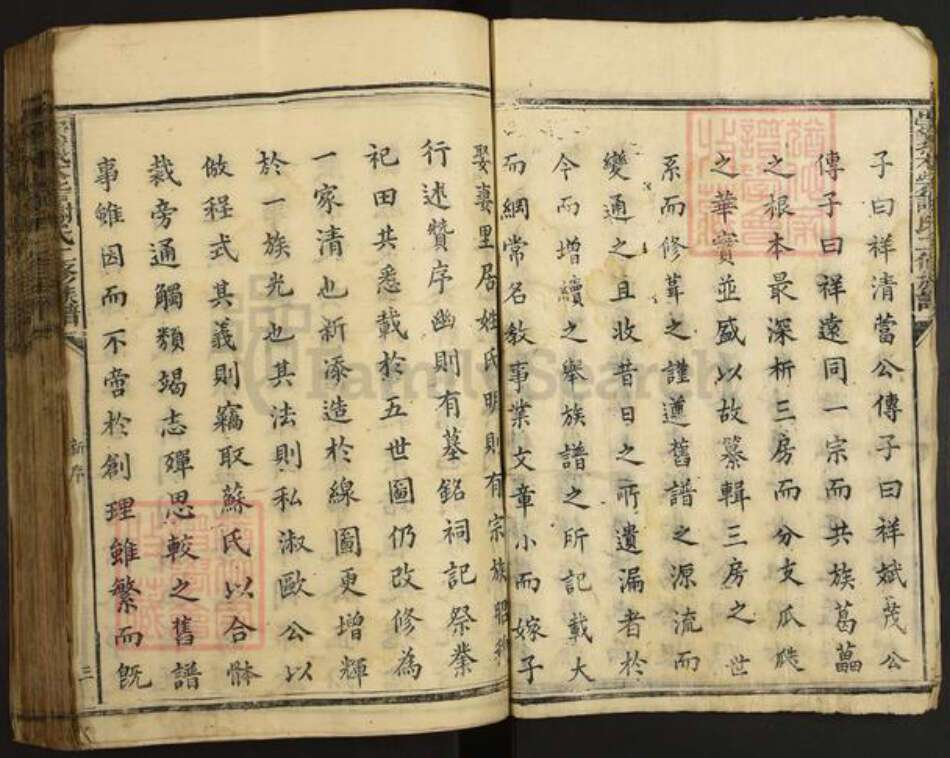 子曰祥清當公傳子曰祥斌茂公
傳子曰祥遠同一宗而共族葛藟
之根本最深析三房而分支瓜瓞
之華實並盛以故纂輯三房之世
系而修葺之謹遵舊譜之源流而
變通之且收昔日之所遺漏者於
今而增續之舉族譜之所記載大
而綱常名教事業文章小而嫁子
娶妻里居姓氏明則有宗族昭穆
行述贊序幽則有墓銘祠記祭業
祀田其悉載於五世圖仍改修為
一家清也新添造於線圖更增輝
於一族光也其法則私淑歐公以
倣程式其義則竊取蘇氏以合體
裁旁通觸類竭志殫思較之舊譜
事雖因而不啻於創理雖繁而既
新序
三
FamilySearch